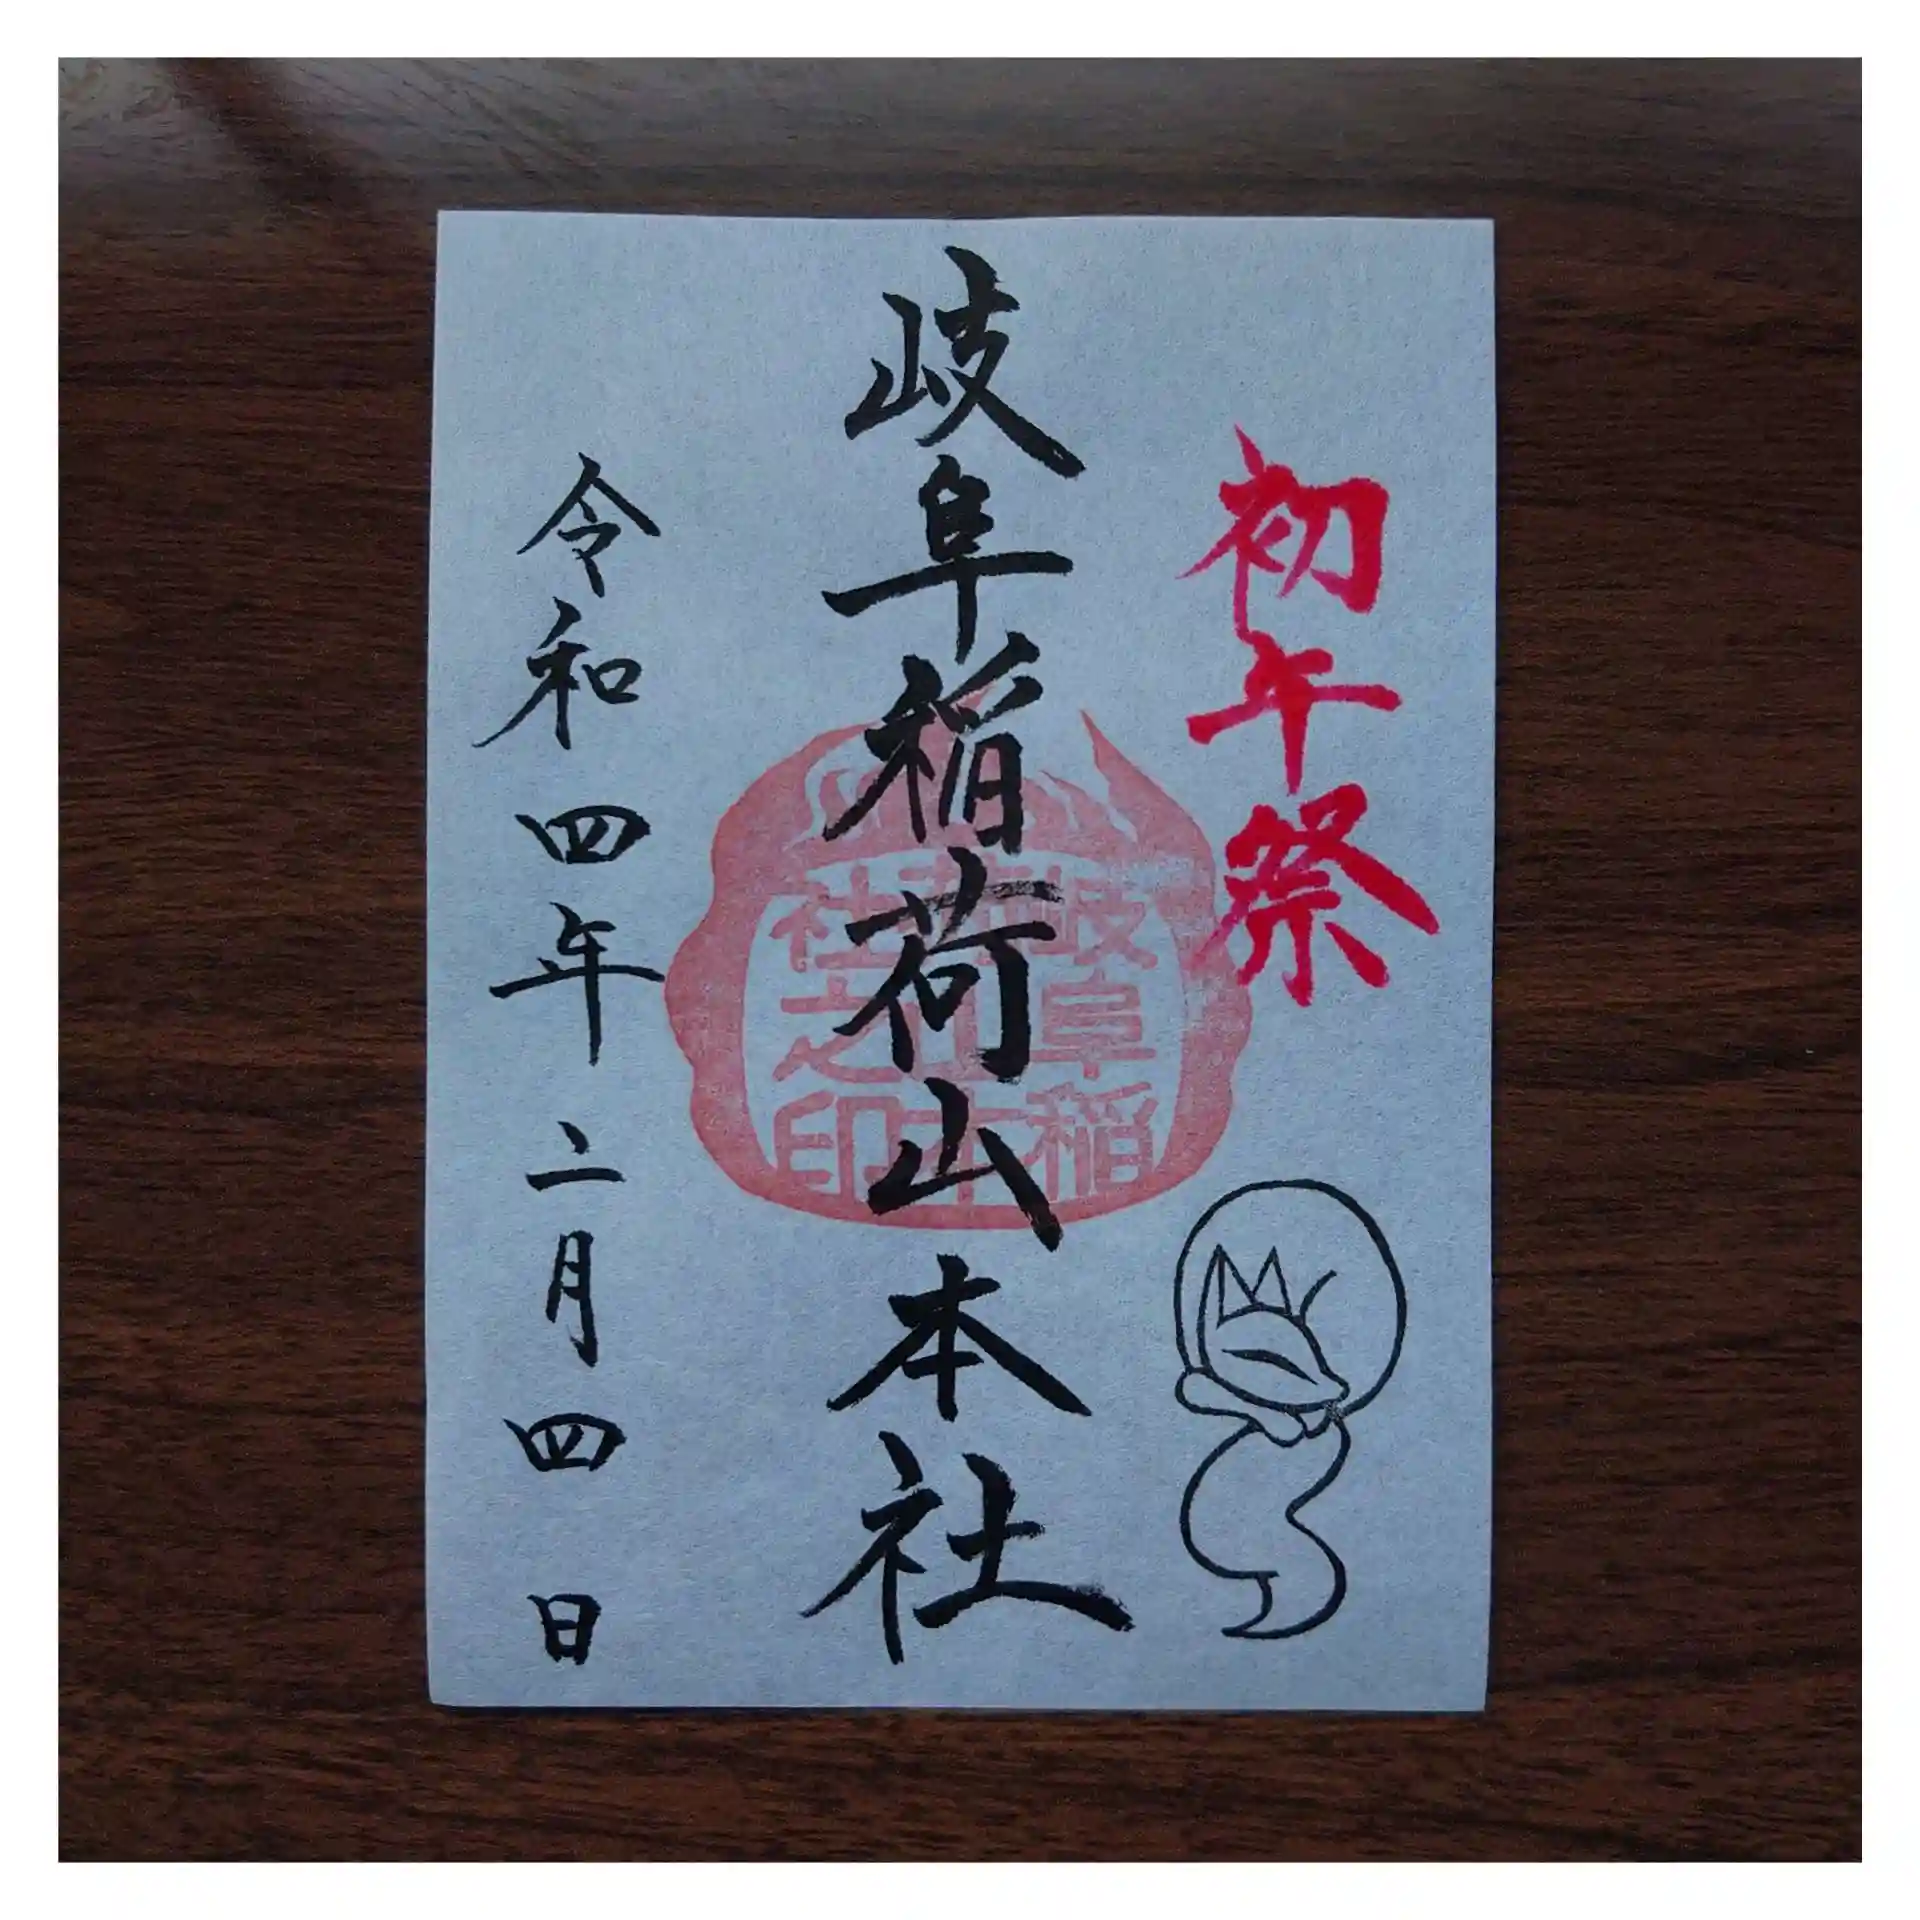 初午祭
岐阜稲荷山本社
岐阜稲
社之印
令和四年二月四日